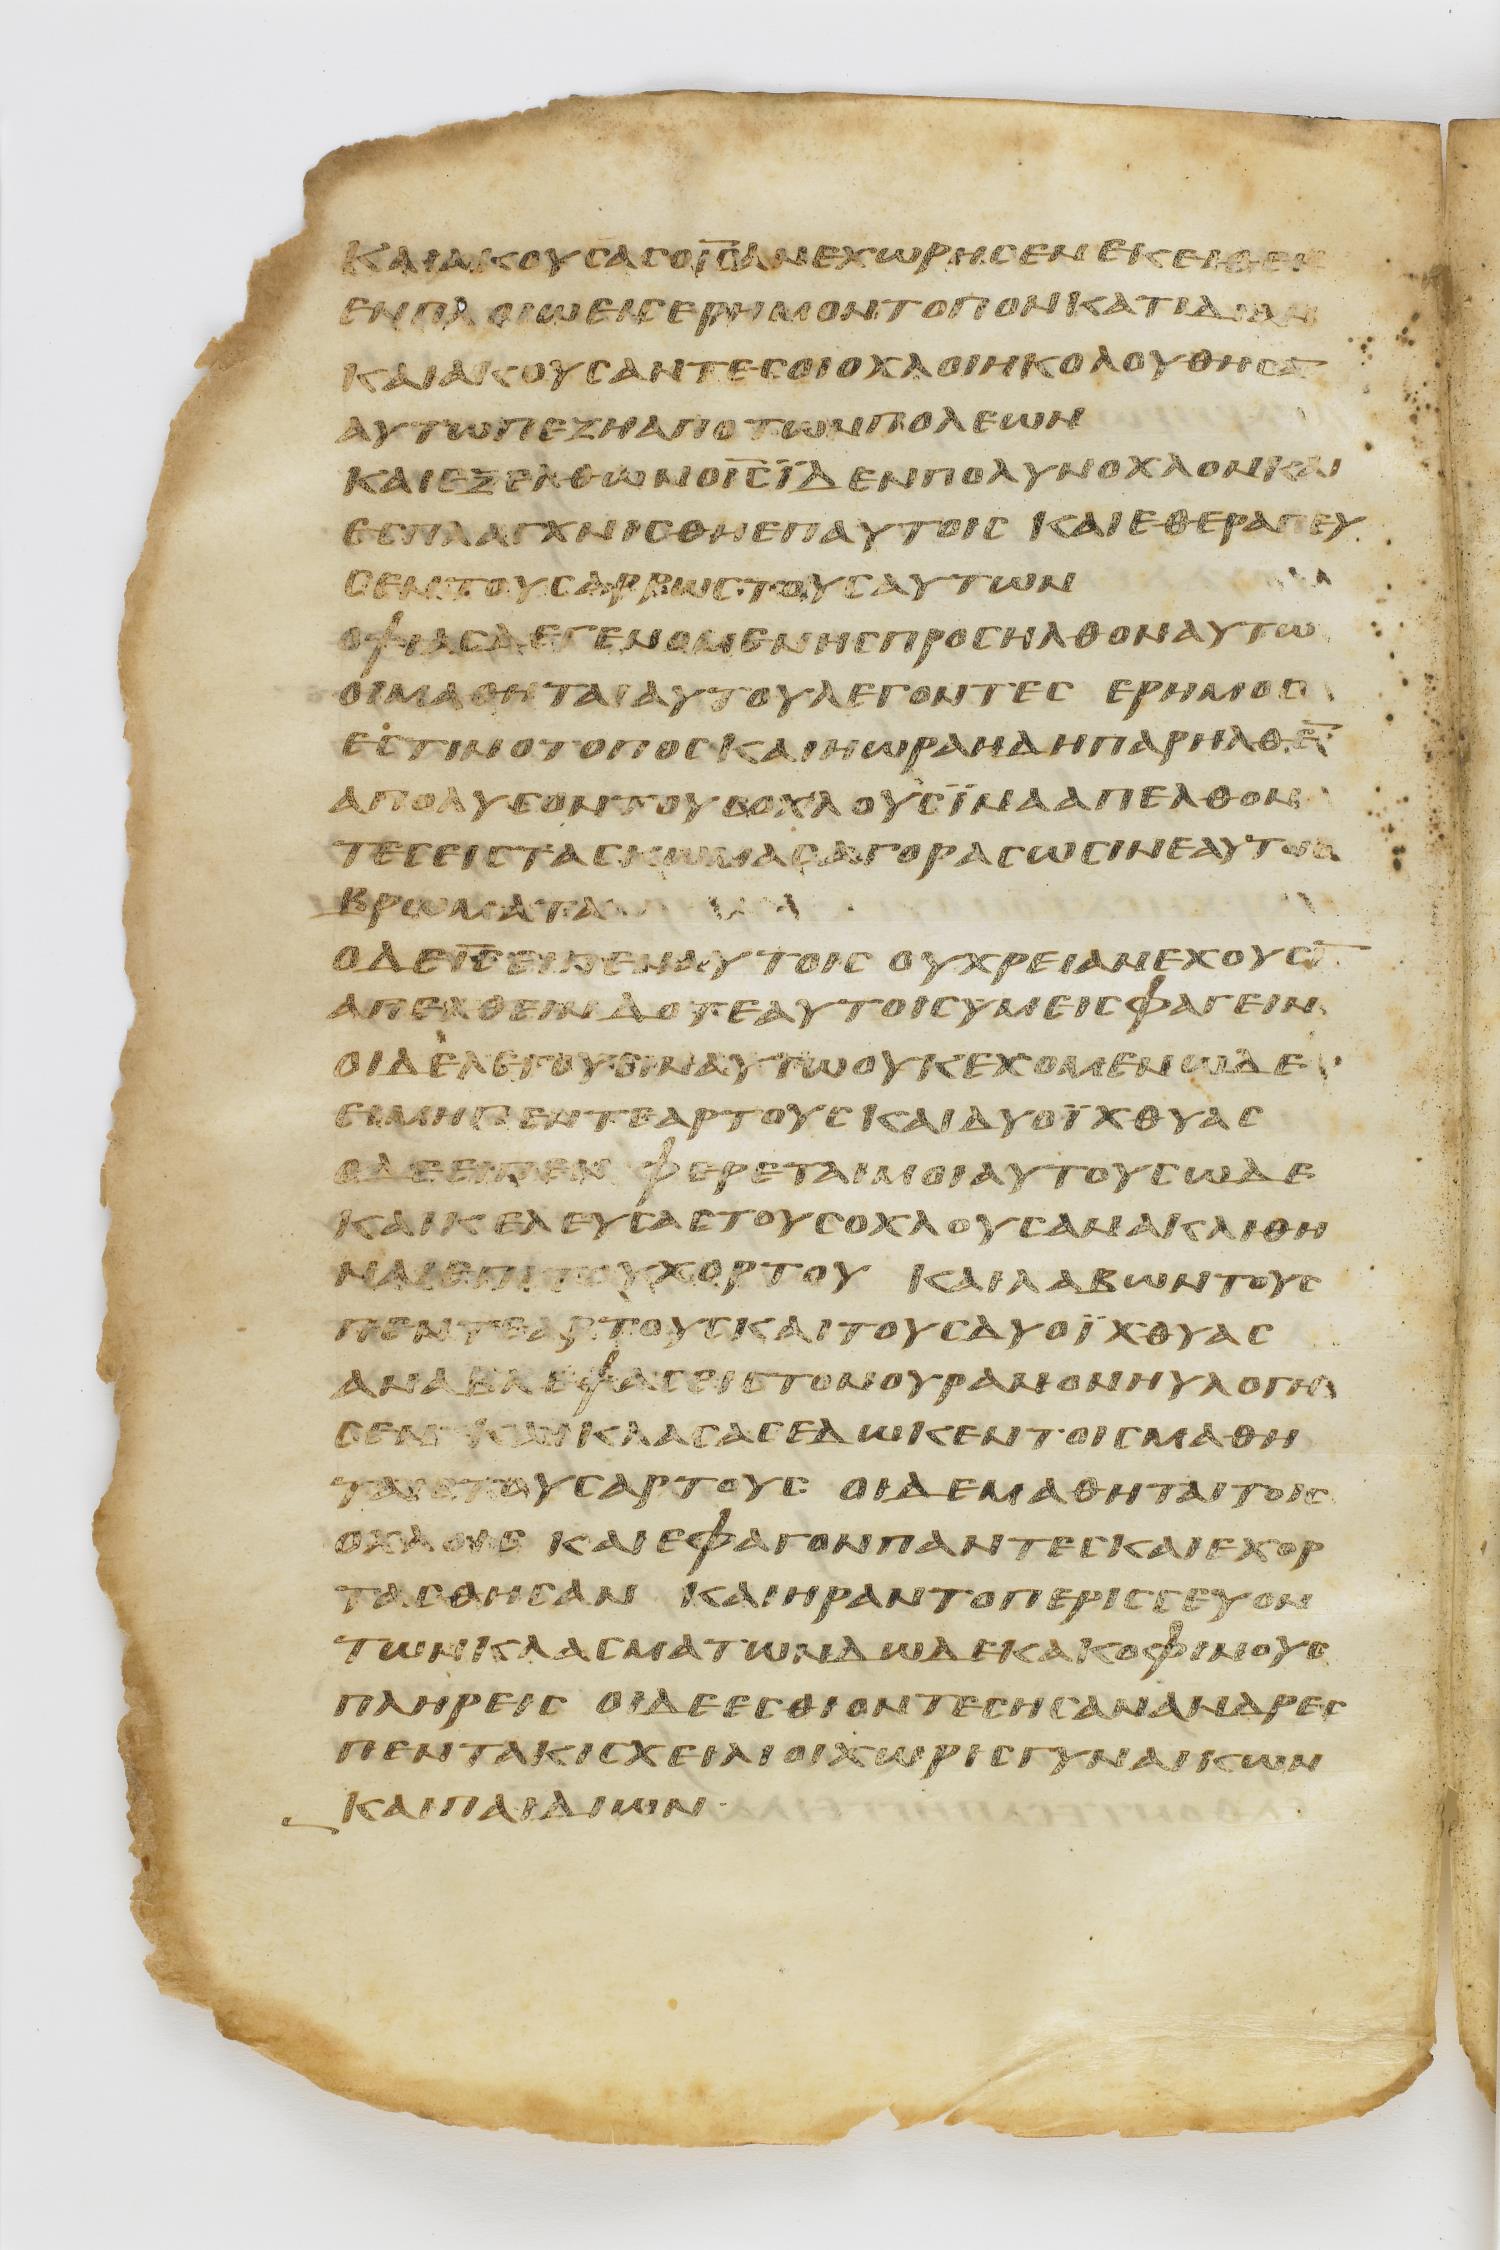 ΚΑΙΑΚΟΥΣΑΣΟΙ̅Σ̅ΑΝΕΧΩΡΗΣΕΝΕΚΕΙΘΕΝ
ΕΝΠΛΟΙΩΕΙΣΕΡΗΜΟΝΤΟΠΟΝΚΑΤΙΔΙΑΝ
ΚΑΙΑΚΟΥΣΑΝΤΕΣΟΙΟΧΛΟΙΗΚΟΛΟΥΘΗΣΑ̅
ΑΥΤΩΠΕΖΗΑΠΟΤΩΝΠΟΛΕΩΝ
ΚΑΙΕΞΕΛΘΩΝΟΙ̅Σ̅ΙΔΕΝΠΟΛΥΝΟΧΛΟΝΚΑΙ
ΕΣΠΛΑΓΧΝΙΣΘΗΕΠΑΥΤΟΙΣ ΚΑΙΕΘΕΡΑΠΕΥ
ΣΕΝΤΟΥΣΑΡΡΩΣΤΟΥΣΑΥΤΩΝ
ΟΨΙΑΣΔΕΓΕΝΟΜΕΝΗΣΠΡΟΣΗΛΘΟΝΑΥΤΩ
ΟΙΜΑΘΗΤΑΙΑΥΤΟΥΛΕΓΟΝΤΕΣ ΕΡΗΜΟΣ
ΕΣΤΙΝΟΤΟΠΟΣΚΑΙΗΩΡΑΗΔΗΠΑΡΗΛΘΕ̅
ΑΠΟΛΥΣΟΝΤΟΥΣΟΧΛΟΥΣΪΝΑΑΠΕΛΘΟΝ
ΤΕΣΕΙΣΤΑΣΚΩΜΑΣΑΓΟΡΑΣΩΣΙΝΕΑΥΤΟΙΣ
ΒΡΩΜΑΤΑ
ΟΔΕΙ̅Σ̅ΕΙΠΕΝΑΥΤΟΙΣ ΟΥΧΡΕΙΑΝΕΧΟΥΣΙ̅
ΑΠΕΛΘΕΙΝΔΟΤΕΑΥΤΟΙΣΥΜΕΙΣΦΑΓΕΙΝ
ΟΙΔΕΛΕΓΟΥΣΙΝΑΥΤΩΟΥΚΕΧΟΜΕΝΩΔΕ
ΕΙΜΗΠΕΝΤΕΑΡΤΟΥΣΚΑΙΔΥΟΪΧΘΥΑΣ
ΟΔΕΕΙΠΕΝ ΦΕΡΕΤΑΙΜΟΙΑΥΤΟΥΣΩΔΕ
ΚΑΙΚΕΛΕΥΣΑΣΤΟΥΣΟΧΛΟΥΣΑΝΑΚΛΙΘΗ
ΝΑΙΕΠΙΤΟΥΧΟΡΤΟΥ ΚΑΙΛΑΒΩΝΤΟΥΣ
ΠΕΝΤΕΑΡΤΟΥΣΚΑΙΤΟΥΣΔΥΟΪΧΘΥΑΣ
ΑΝΑΒΛΕΨΑΣΕΙΣΤΟΝΟΥΡΑΝΟΝΗΥΛΟΓΗ
ΣΕΝ ΚΑΙΚΛΑΣΑΣΕΔΩΚΕΝΤΟΙΣΜΑΘΗ
ΤΑΙΣΤΟΥΣΑΡΤΟΥΣ ΟΙΔΕΜΑΘΗΤΑΙΤΟΙΣ
ΟΧΛΟΙΣ ΚΑΙΕΦΑΓΟΝΠΑΝΤΕΣΚΑΙΕΧΟΡ
ΤΑΣΘΗΣΑΝ ΚΑΙΗΡΑΝΤΟΠΕΡΙΣΣΕΥΟΝ
ΤΩΝΚΛΑΣΜΑΤΩΝΔΩΔΕΚΑΚΟΦΙΝΟΥΣ
ΠΛΗΡΕΙΣ ΟΙΔΕΕΣΘΙΟΝΤΕΣΗΣΑΝΑΝΔΡΕΣ
ΠΕΝΤΑΚΙΣΧΕΙΛΙΟΙΧΩΡΙΣΓΥΝΑΙΚΩΝ
ΚΑΙΠΑΙΔΙΩΝ